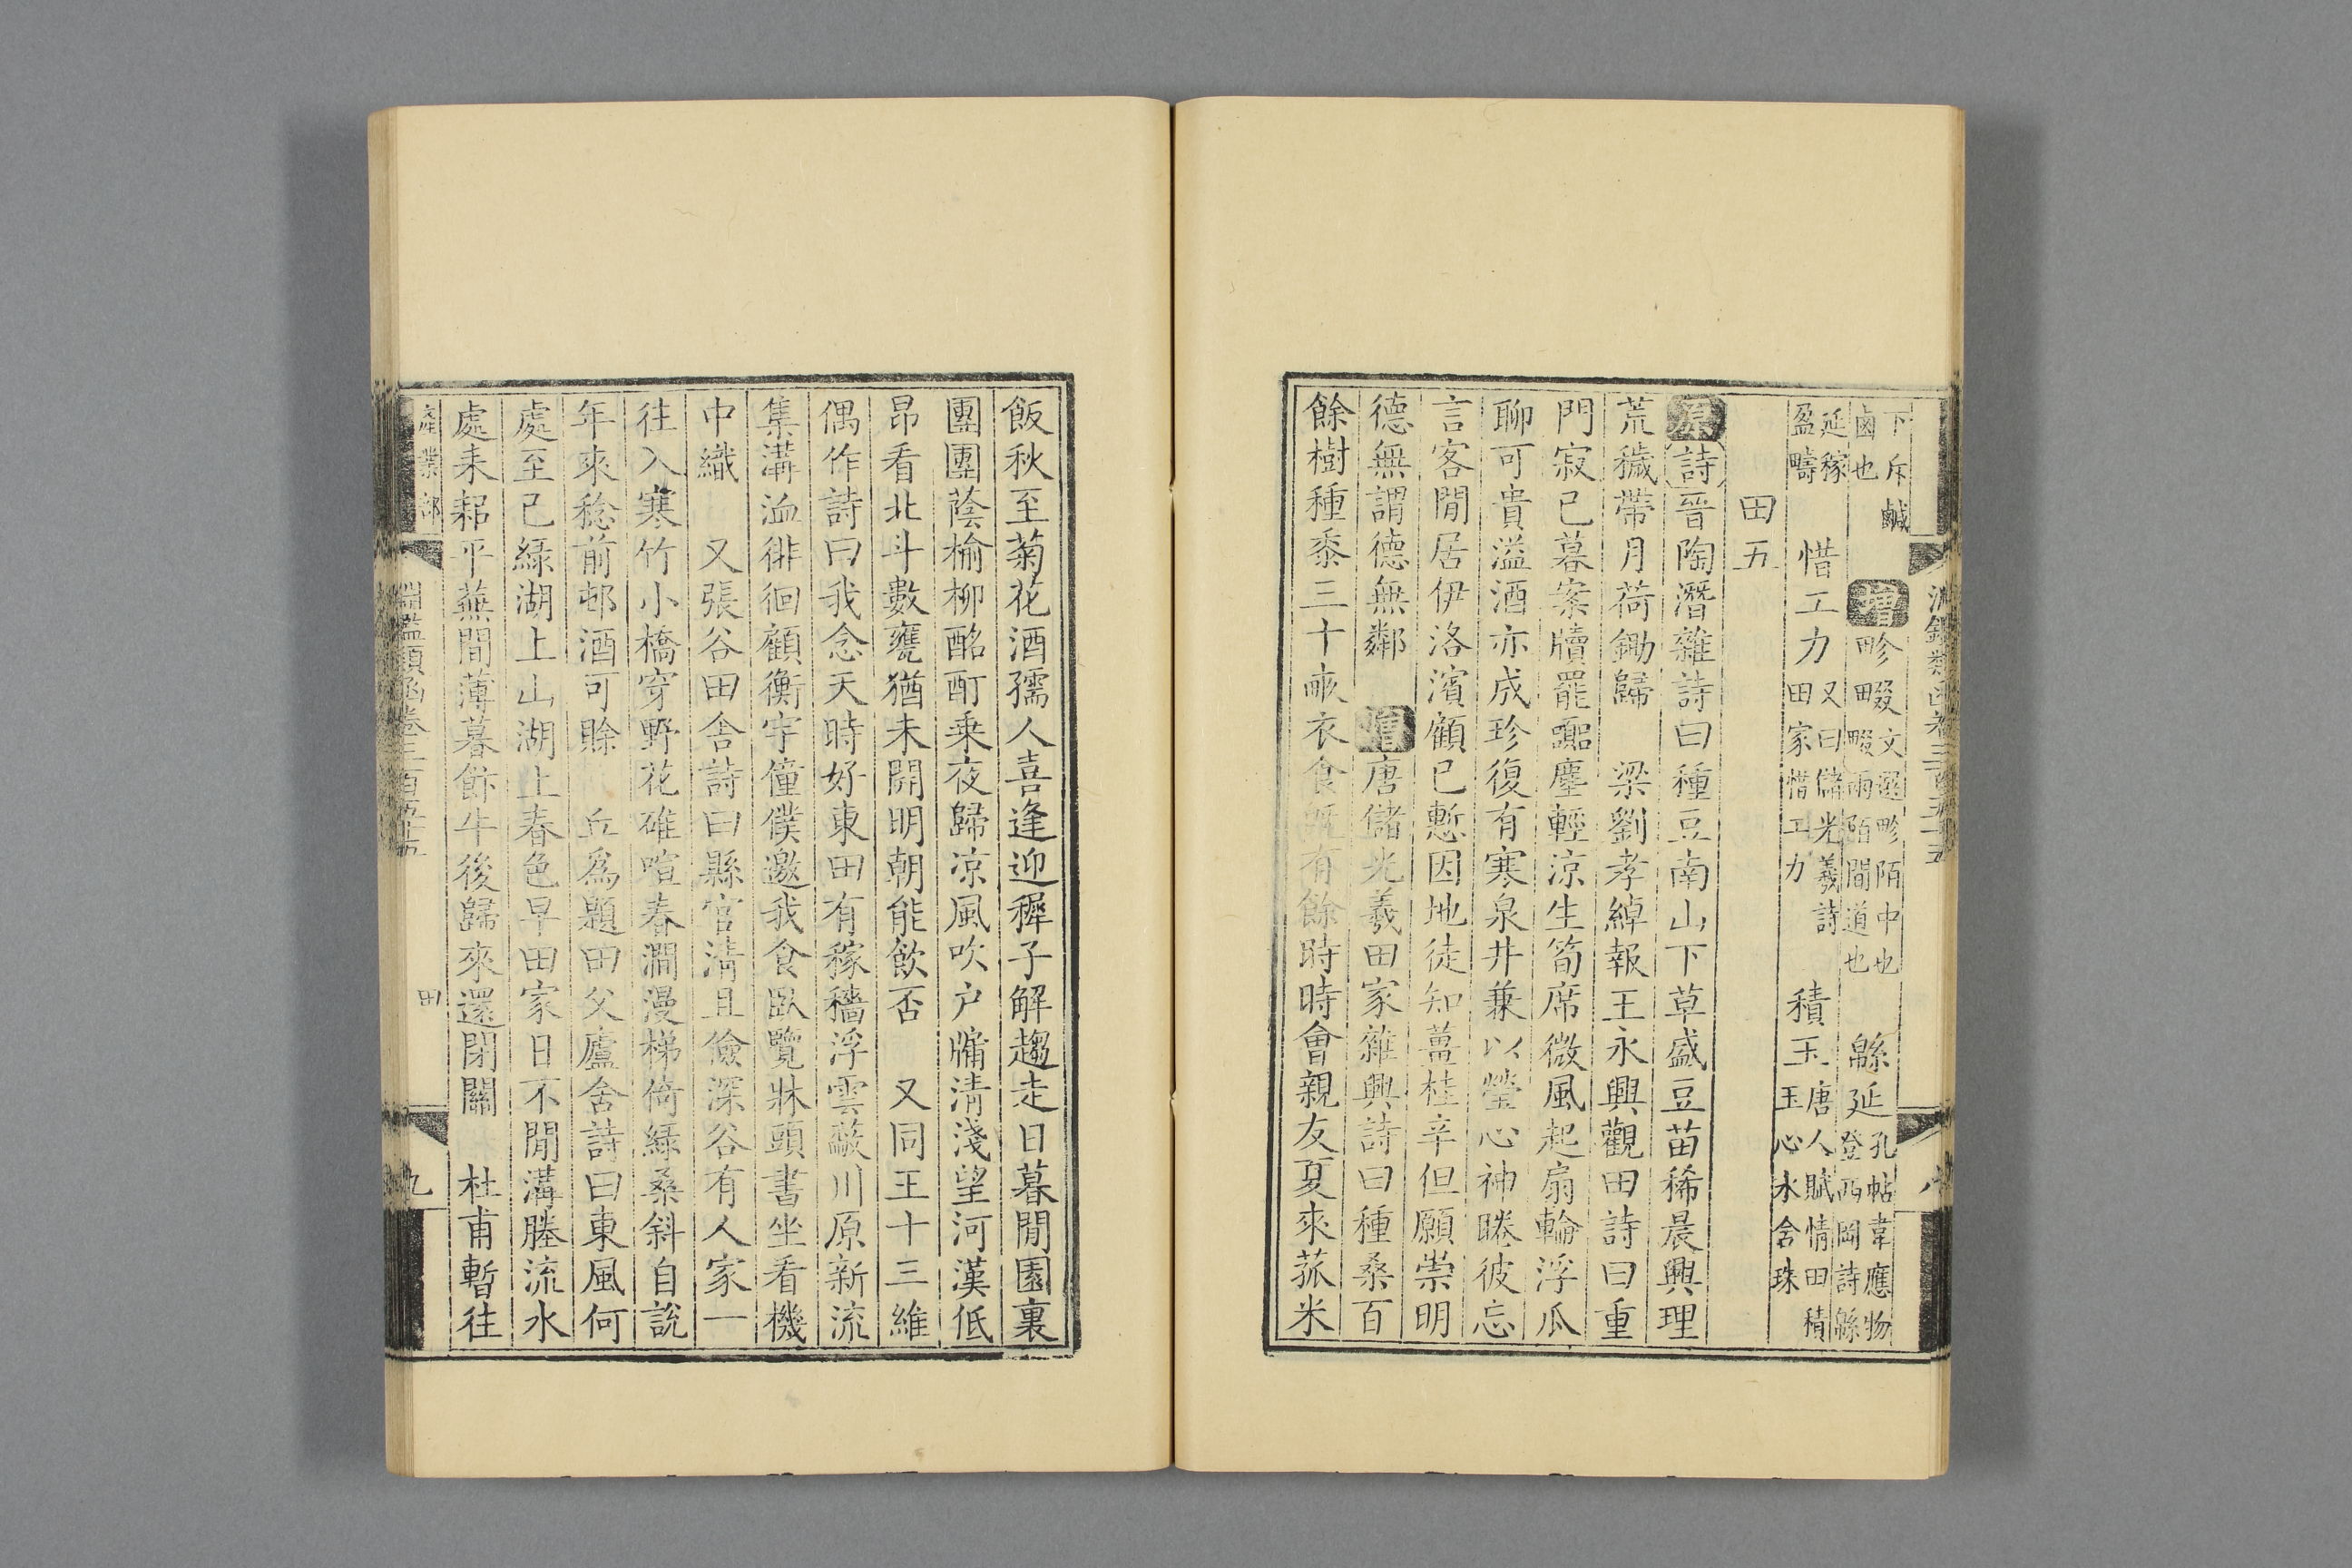 下斥鹹鹵也 增畛畷文選畛陌中也畷兩陌間道也 緜延孔帖韋應物登西岡詩緜
延稼盈疇 惜工力又曰儲光羲詩田家惜工力 積玉唐人賦情田積玉心水含珠
田五
原詩晉陶潛雜詩曰種豆南山下草盛豆苗稀晨興理
荒穢帶月荷鋤歸 梁劉孝綽報王永興觀田詩曰重
門寂已暮案牘罷囂塵輕涼生筍席微風起扇輪浮瓜
聊可貴溢酒亦成珍復有寒泉井兼以瑩心神睠彼忘
言客閒居伊洛濱顧已慙因地徒知薑桂辛但願崇明
德無謂德無鄰 增唐儲光羲田家雜興詩曰種桑百
餘樹種黍三十畝衣食旣有餘時時會親友夏來菰米
飯秋至菊花酒孺人喜逢迎穉子解趨走日暮閒園裏
團團蔭榆柳酩酊乘夜歸涼風吹户牖清淺望河漢低
昂看北斗數甕猶未開明朝能飲否 又同王十三維
偶作詩曰我念天時好東田有稼穡浮雲蔽川原新流
集溝洫徘徊顧衡宇僮僕邀我食臥覽牀頭書坐看機
中織 又張谷田舍詩曰縣官清且儉深谷有人家一
徃入寒竹小橋穿野花碓喧春澗漫梯倚綠桑斜自説
年來稔前邨酒可賒 丘爲題田父廬舍詩曰東風何
處至已綠湖上山湖上春色早田家日不閒溝塍流水
處耒耜平蕪間薄暮飯牛後歸來還閉關 杜甫暫往
產業部 淵鑑類函卷三百五十五 田 九